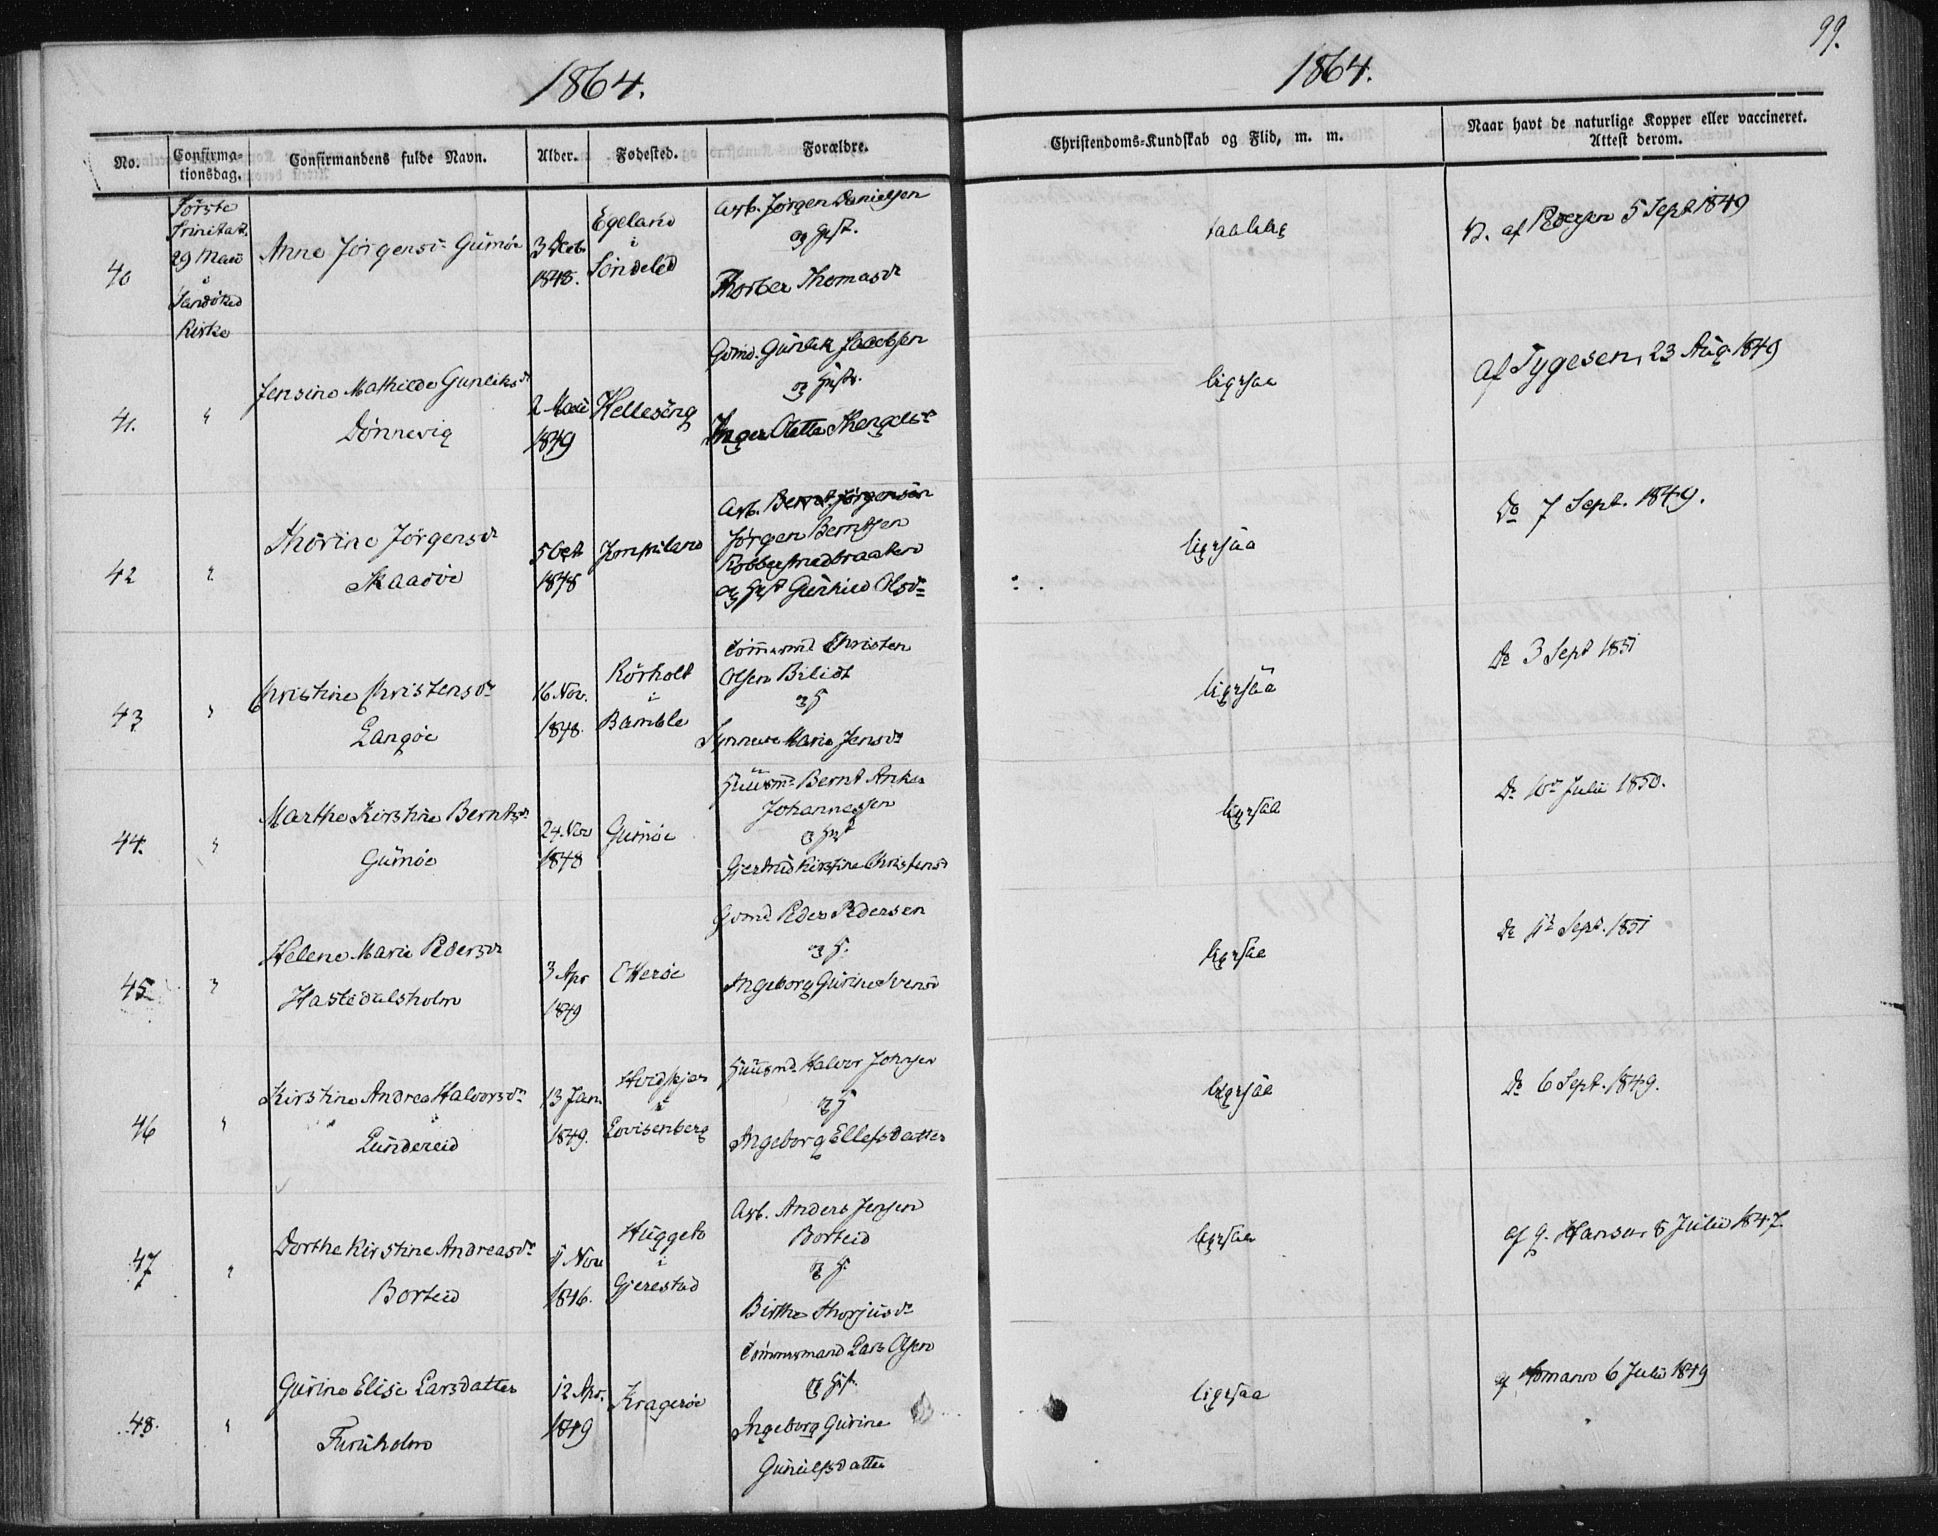 99.
1864.
1864.
No.
Confirma-
tionsdag.
Confirmandens fulde Navn.
Alder.
Fødested.
Forældre.
Christendoms-Kundskab og Flid, m. m.
Naar havt de naturlige Kopper eller vaccineret.
Attest derom.
40
Første
Trinitat.
29 Maii
i
Kirke
Anne Jørgensd. Gumøe
3 Decb.
1848.
Egeland
i
Søndeled
Arb. Jørgen Danielsen
og Hust.
Thorber Thomasd
taalelig
V. af 5 Sept 1849
41.
"
Jensine Mathilde Gunliksd.
Dønnevig
2 Maii
1849
Hellesëng
Gomd. Gunlik Jacobsen
og Hustr.
Inger Olette
ligesaa
Af Tygesen, 23 Aug. 1849
42
"
Thorine Jørgensd
Skaadøe
5 Oct
1848
Jomfruland
Arb. Bernt Jørgensen
Jørgen Berntsen
og Hust Gunhild Olsd.
ligesaa
Do 7 Sept. 1849.
43
"
Christine Christensd.
Langøe
16 Nov.
1848.
Rørholt
i
Bamble
Tømmermd Christen
Olsen
og H
Synneve Marie Jensd.
ligesaa
Do 3 Sept 1851
44.
"
Marthe Kirstine Berntsd.
Gumøe
24. Nov
1848
Gumøe
Huusmd. Bernt Anker
Johannessen
og Hust
Gjertrud Kirstine Christensd
ligesaa
Do 10de Julii 1850.
45
"
Helene Marie Pedersd.
Hastedalsholm
3 Apr
1849
Otterøe
Gomd Peder Pedersen
og H.
Ingeborg Gurine Svensd
ligesaa
Do Sept. 1851
46
"
Kirstine Andrea Halvorsd.
Lundereid
13 Jan.
1849.
i
Lovisenberg
Huusmd. Halvor Johnsen
og H
Ingeborg Ellefsdatter
ligesaa
Do 6 Sept. 1849.
47
"
Dorthe Kirstine Andreasd.
Borteid
Nov
1846.
Huggeto
i
Gjerestad
Arb. Anders Jensen
Borteid
og H.
Birthe Thorjusd.
ligesaa
af G. Hansen 8 Julii 1847.
48.
"
Gurine Elise Larsdatter
Furuholm
12 Apr.
1849
Kragerøe
Tømmermand Lars Olsen
og Hust.
Ingeborg Gurine
Gunulfsdatter
ligesaa
af Homann 6 Julii 1849